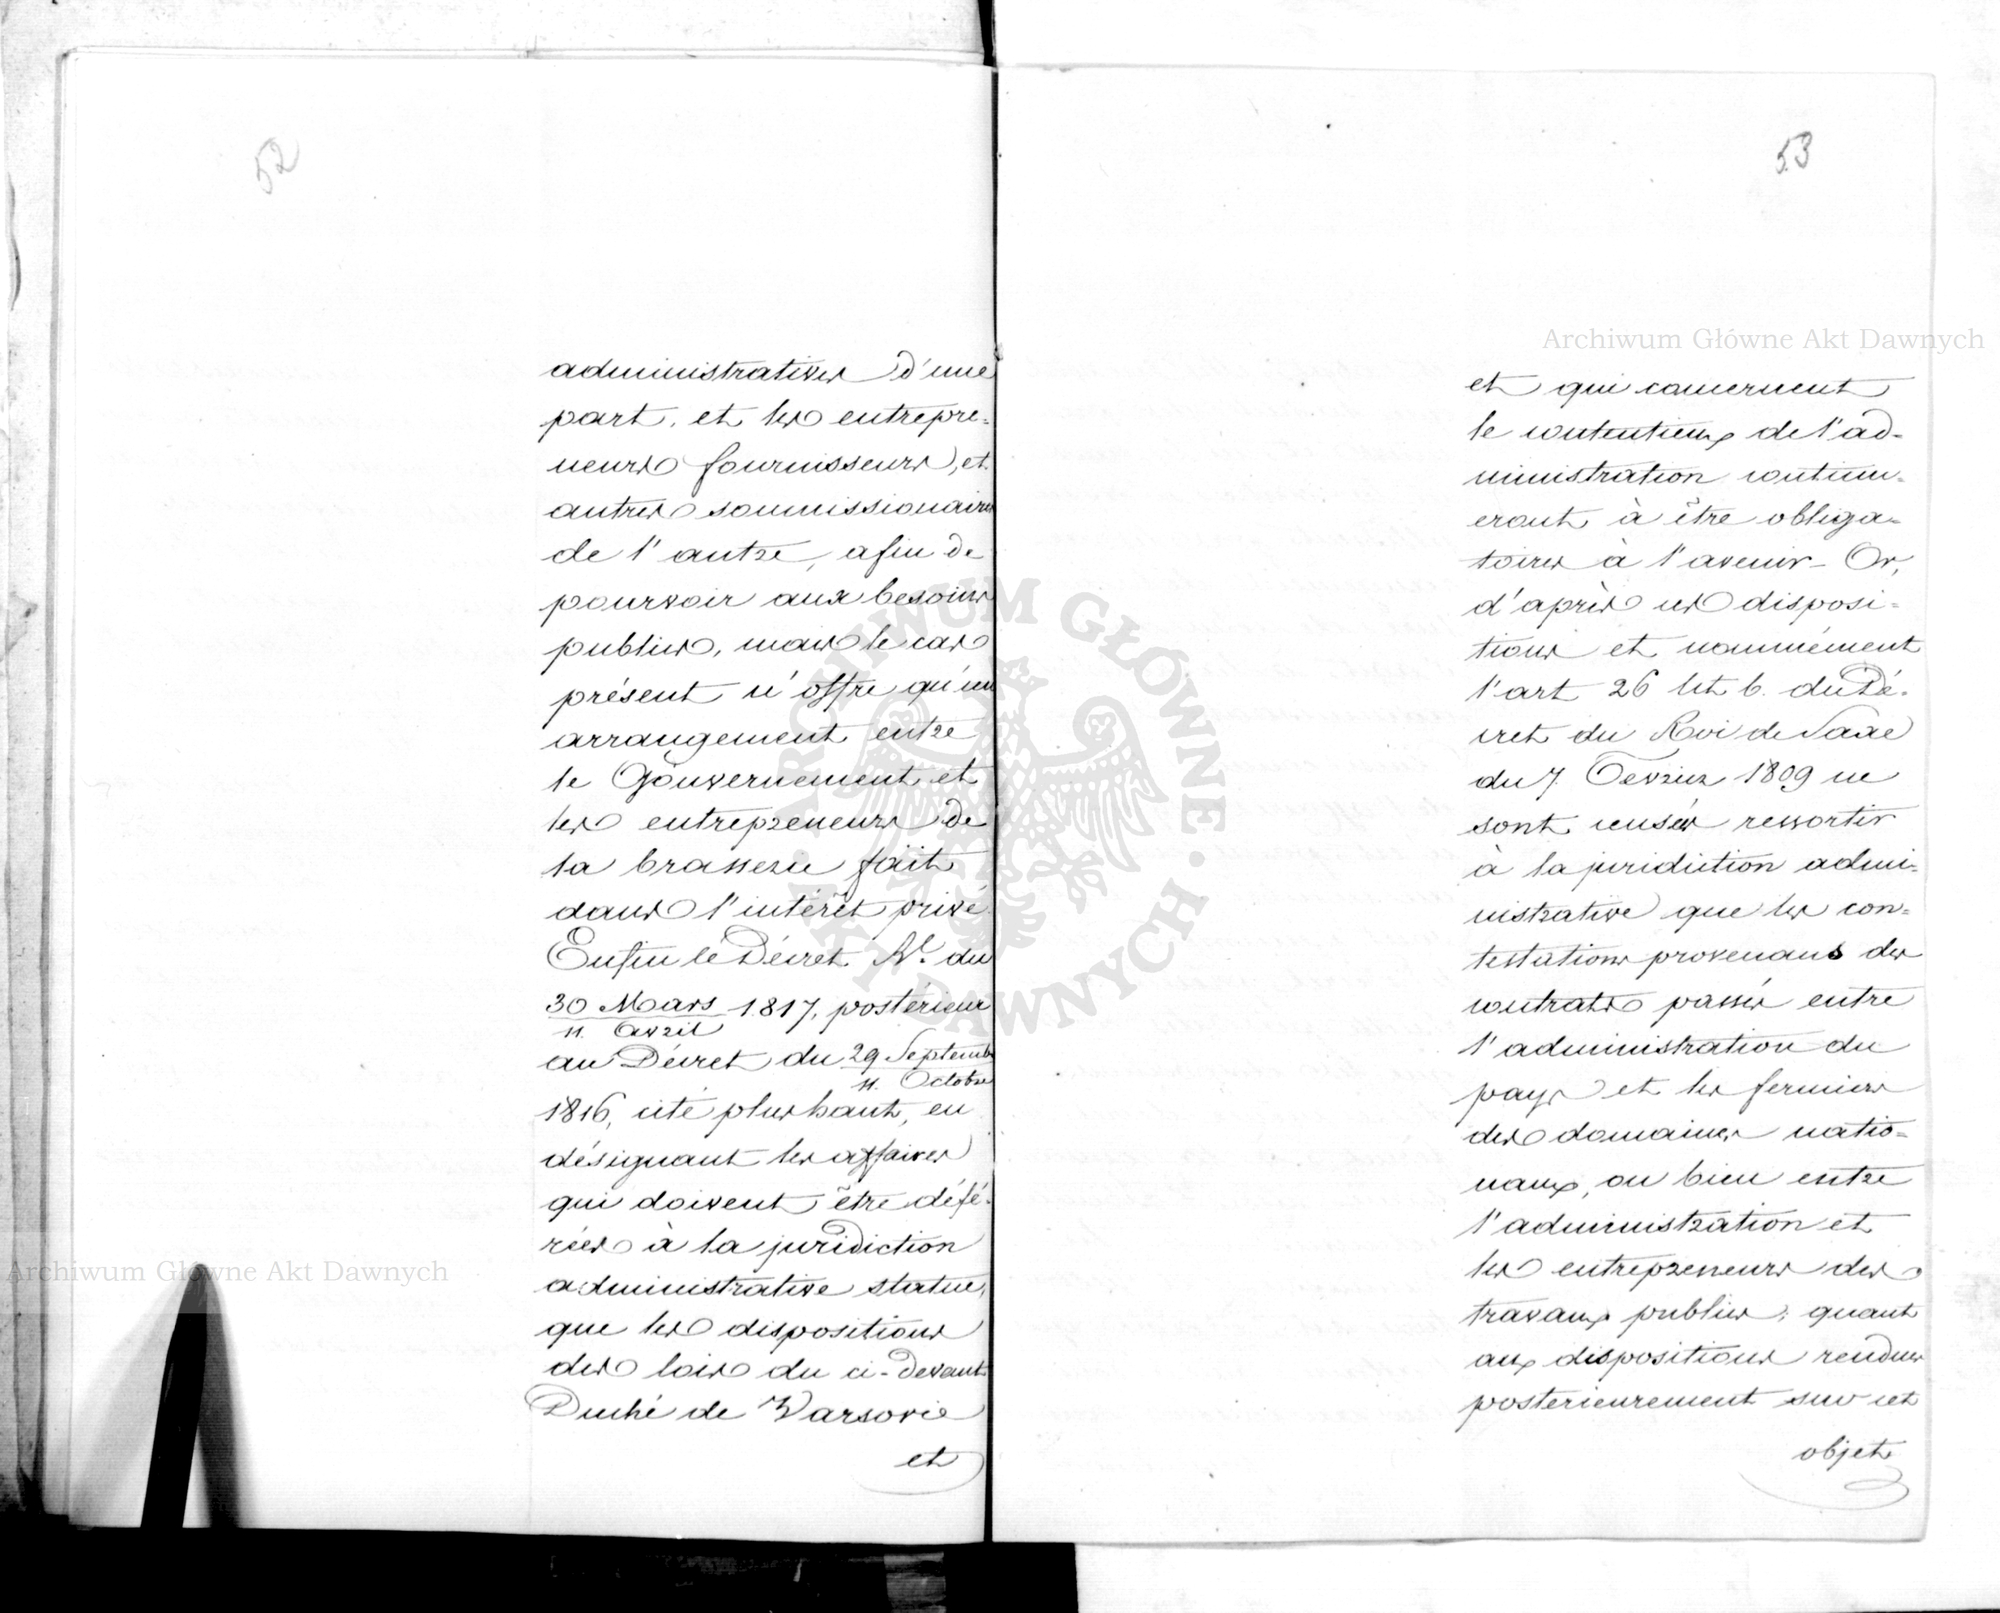 52
administratives d'une
part, et les entrepre=
neurs fournisseurs, et
autres soumissionaires
de l'autre, afin de
pourvoir aux besoins
publics, mais le cas
présent n'offre qu'un
arrangement entre
le Gouvernement et
les entrepreneurs de
la brasserie fait
dans l'intérêt privé.
Enfin le Décret Rl. du
30 Mars 1817, postérieur
11. Avril
au Décret du 29 Septembre
11. Octobre
1816, cité plus haut, en
désignant les affaires
qui doivent être défé-
rées à la juridiction
administrative statue,
que les dispositions
des lois du ci-devant
Duché de Varsovie
et
53
et qui concernent
le contentieux de l'ad-
ministration continu-
eront à être obliga-
toires à l'avenir - Or,
d'après ces disposi=
tions et nommément
l'art 26 litt b. du Dé-
cret du Roi de Saxe
du 7. Fevrier 1809 ne
sont censés ressortir
à la juridiction admi-
nistrative que les con=
testations provenans des
contrats passés entre
l'administration du
pays et les fermiers
des domaines natio=
naux, ou bien entre
l'administration et
les entrepreneurs des
travaux publics; quant
aux dispositions rendues
posterieurement sur cet
objet
Archiwum Główne Akt Dawnych
Archiwum Główne Akt Dawnych
ARCHIWUM GŁÓWNE · AKT DAWNYCH ·